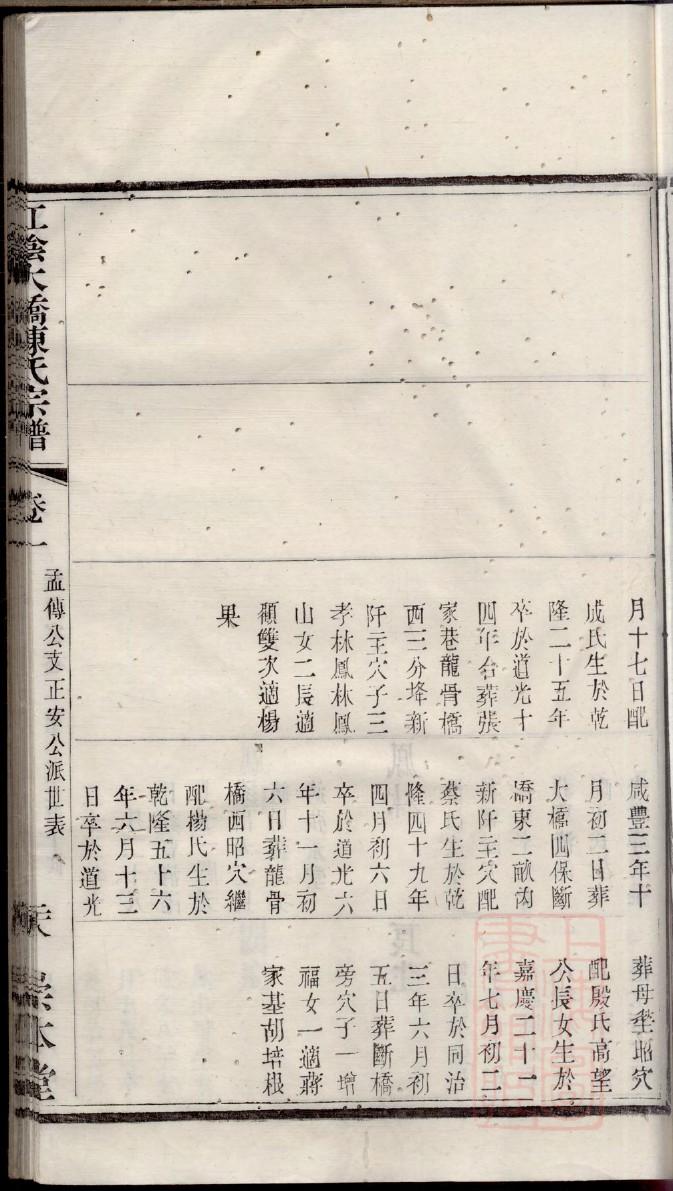 月十七日配
成氏生於乾
隆二十五年
卒於道光十
四年合葬張
家巷龍骨橋
西三分埄新
阡主穴子三
孝林鳳林鳳
山女二長適
顧雙次適楊
果
咸豐三年十
月初二日葬
大橋四保斷
橋東二畝沟
新阡主穴配
蔡氏生於乾
隆四十九年
四月初六日
卒於道光六
年十一月初
六日葬龍骨
橋西昭穴繼
配楊氏生於
乾隆五十六
年六月十三
日卒於道光
葬母塋昭穴
配殷氏高望
公長女生於
嘉慶二十一
年七月初二
日卒於同治
三年六月初
五日葬斷橋
旁穴子一增
福女一適蔣
家基胡培根
江陰大橋陳氏宗譜
卷一
孟傳公支正安公派世表
崇本堂